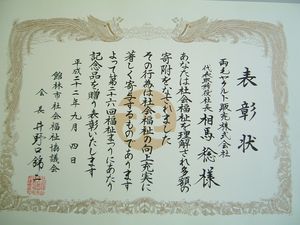 表彰状
両毛ヤクルト販売株式会社
代表取締役社長 相馬 稔 様
あなたは社会福祉を理解され多額の
寄附をなされました
その行為は社会福祉の向上充実に
著しく寄与するものであります
よって第二十六回福祉まつりにあたり
記念品を贈り表彰いたします
平成二十二年九月四日
館林市社会福祉協議会
会長 井野口